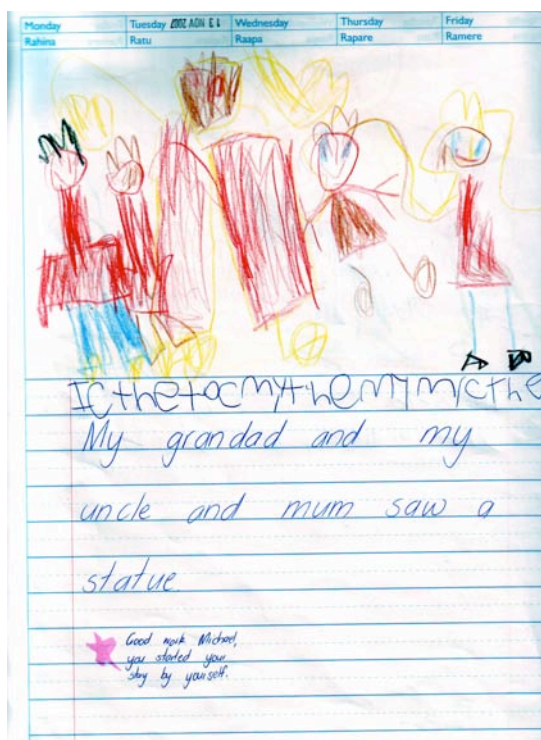 Monday Tuesday 13 NOV 2007 Wednesday Thursday Friday
Rahina Ratu Raapa Rapare Ramere
IcthetocmythemymIcthe
My grandad and my
uncle and mum saw a
statue.
Good work Michael,
you started your
story by yourself.